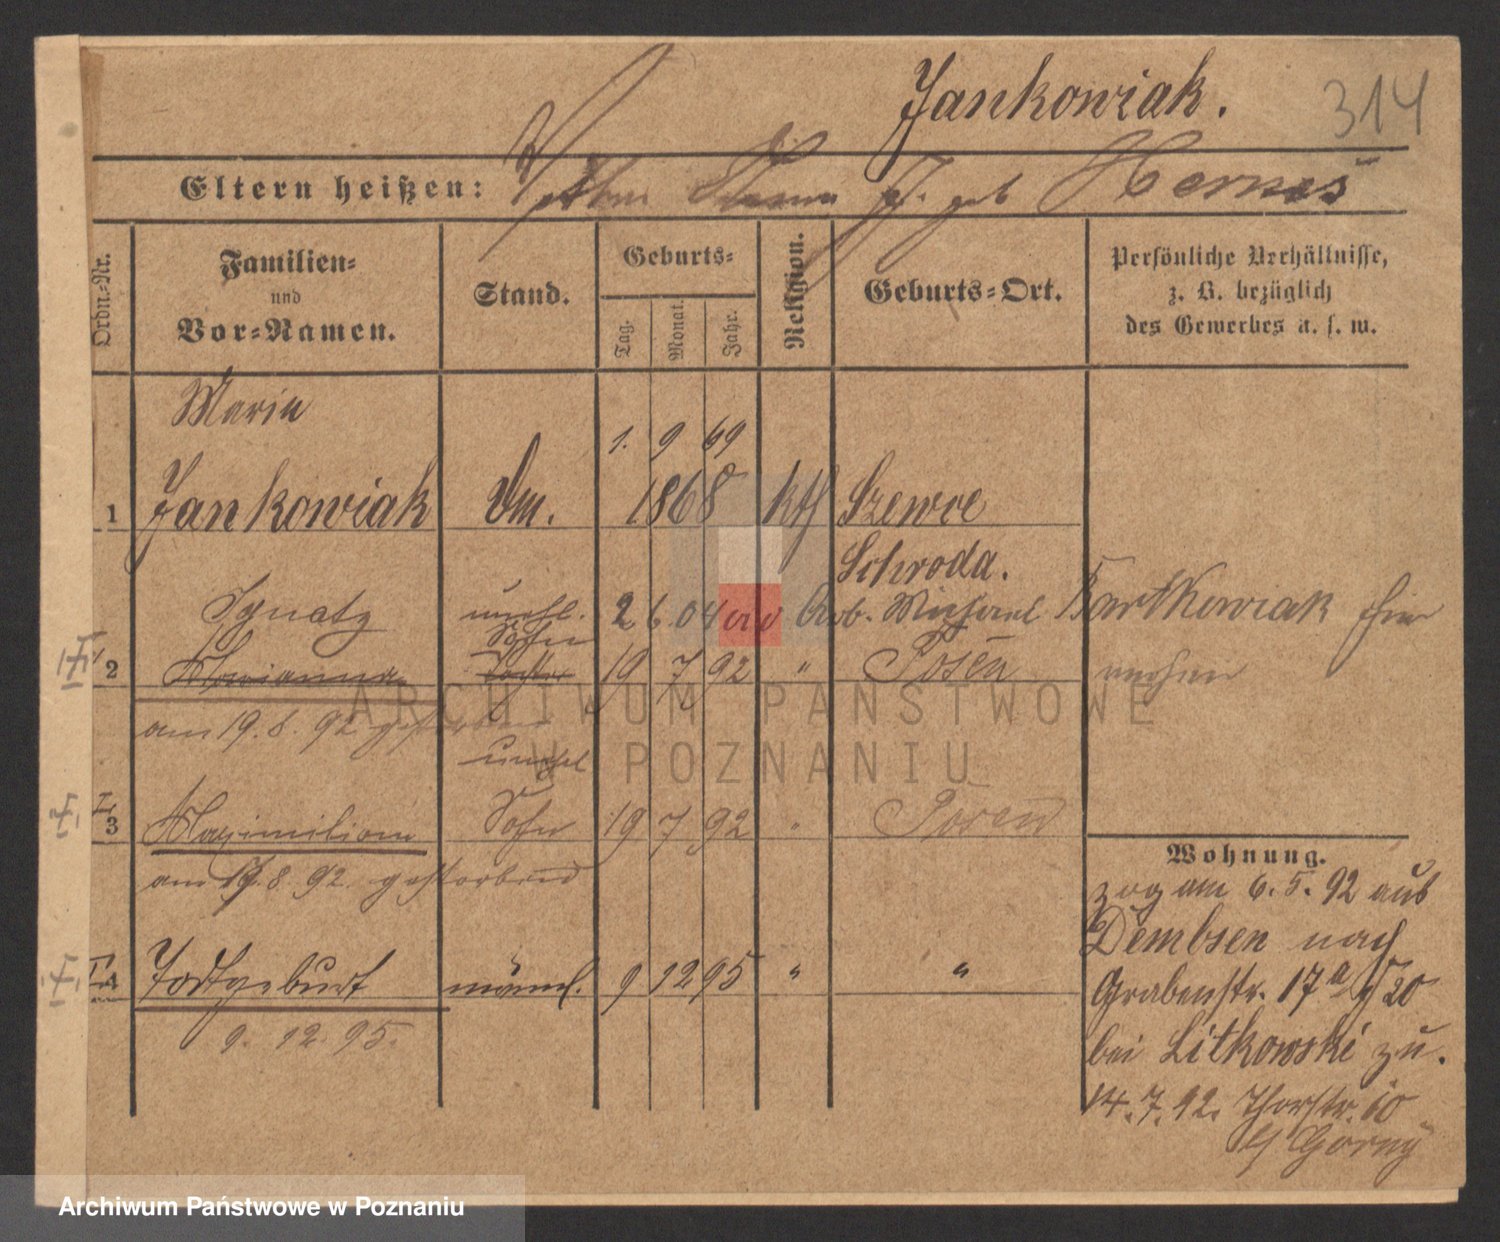 Jankowiak.
314
Eltern heißen: geb
Ordn.-Nr.
Familien-
und
Vor-Namen.
Stand.
Geburts-
Tag.
Monat.
Jahr.
Religion.
Geburts-Ort.
Persönliche Verhältnisse,
z. B. bezüglich
des Gewerbes u. s. w.
Maria
1. 9 69
1 Jankowiak 1868 kth Szewce
Schroda.
Ignatz unehl. 2 6. 04 Arb. Michael Bartkowiak hier
Sohn
2 Marianna Tochter 19 7 92 " Posen
am 19. 8. 92 gestorben
unehel
3 Maximilian Sohn 19 7 92 " Posen
am 19. 8. 92. gestorben
4 Todtgeburt männl. 9 12 95 " "
9. 12. 95.
Wohnung.
zog am 6. 5. 92 aus
Dembsen nach
Grabenstr. 17a 20
bei Litkowski zu.
14. 7. 92. Thorstr. 10
b/ Gorny
ARCHIWUM PAŃSTWOWE
W POZNANIU
Archiwum Państwowe w Poznaniu